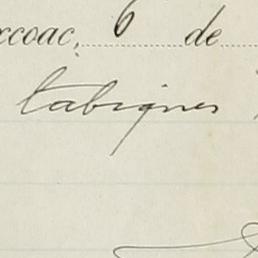 xcoac, 6 de
tabiques